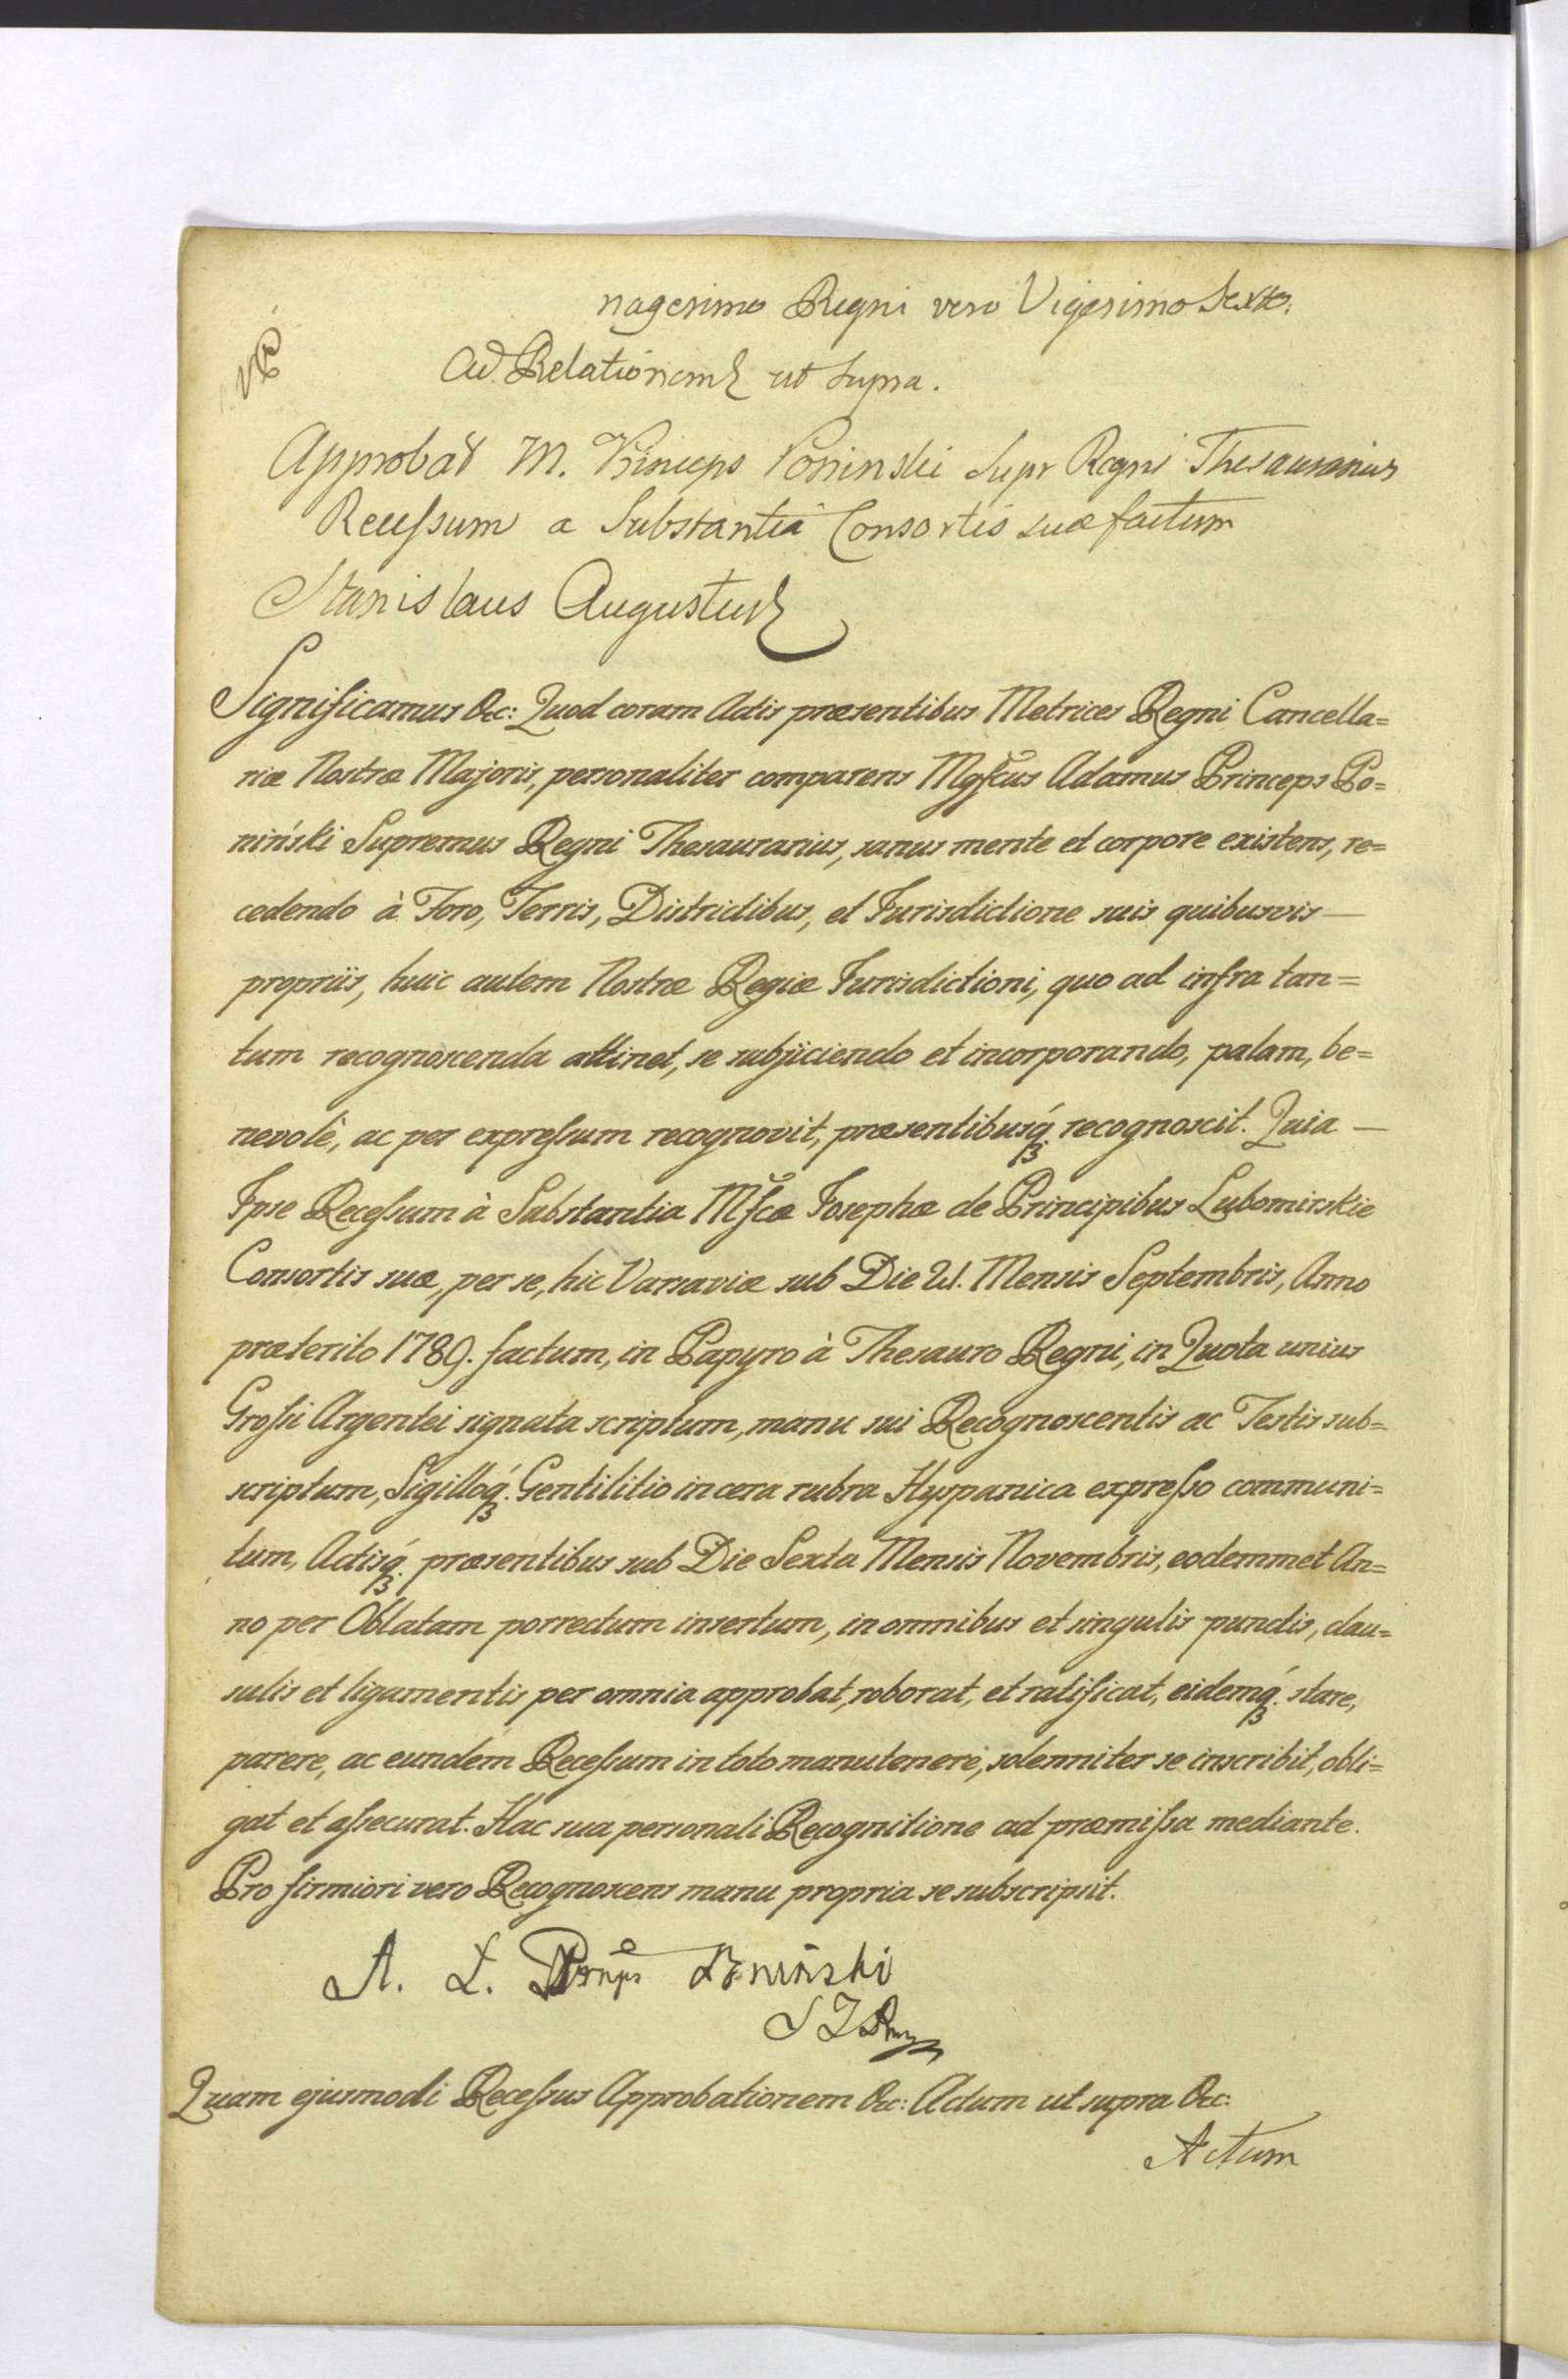 nagesimo Regni vero Vigesimo Sexto.
Ad Relationem ut supra.
Approbat M. Princeps Poninski Supr Regni Thesaurarius
Recessum a Substantia Consortis suæ factum
Stanislaus Augustus
Significamus &c: Quod coram Actis præsentibus Metrices Regni Cancella=
riæ Nostræ Majoris, personaliter comparens Mgfcus Adamus Princeps Po=
niński Supremus Regni Thesaurarius, sanus mente et corpore existens, re=
cedendo à Foro, Terris, Districtibus, et Iurisdictione suis quibusvis—
propriis, huic autem Nostræ Regiæ Iurisdictioni, quo ad infra tan=
tum recognoscenda attinet, se subjiciendo et incorporando, palam, be=
nevolè, ac per expressum recognovit, præsentibusq́ꝫ. recognoscit. Quia—
Ipse Recessum à Substantia Mfcæ Iosephæ de Principibus Lubomirskie
Consortis suæ, per se, hic Varsaviæ sub Die Mensis Septembris, Anno
præterito 1789. factum, in Papyro à Thesauro Regni, in Quota unius
Grossi Argentei signata scriptum, manu sui Recognoscentis ac Testis sub=
scriptum, Sigilloq́ꝫ. Gentilitio in cera rubra Hyspanica expresso communi=
tum, Actisq́ꝫ. præsentibus sub Die Sexta Mensis Novembris, eodemmet An=
no per Oblatam porrectum insertum, in omnibus et singulis punctis, clau=
sulis et ligamentis per omnia approbat, roborat, et ratificat, eidemq́ꝫ. stare,
parere, ac eundem Recessum in toto manutenere, solenniter se inscribit, obli=
gat et assecurat. Hac sua personali Recognitione ad præmissa mediante.
Pro firmiori vero Recognoscens manu propria se subscripsit.
A. L. Poniński
Quam ejusmodi Recessus Approbationem &c: Actum ut supra &c:
Actum